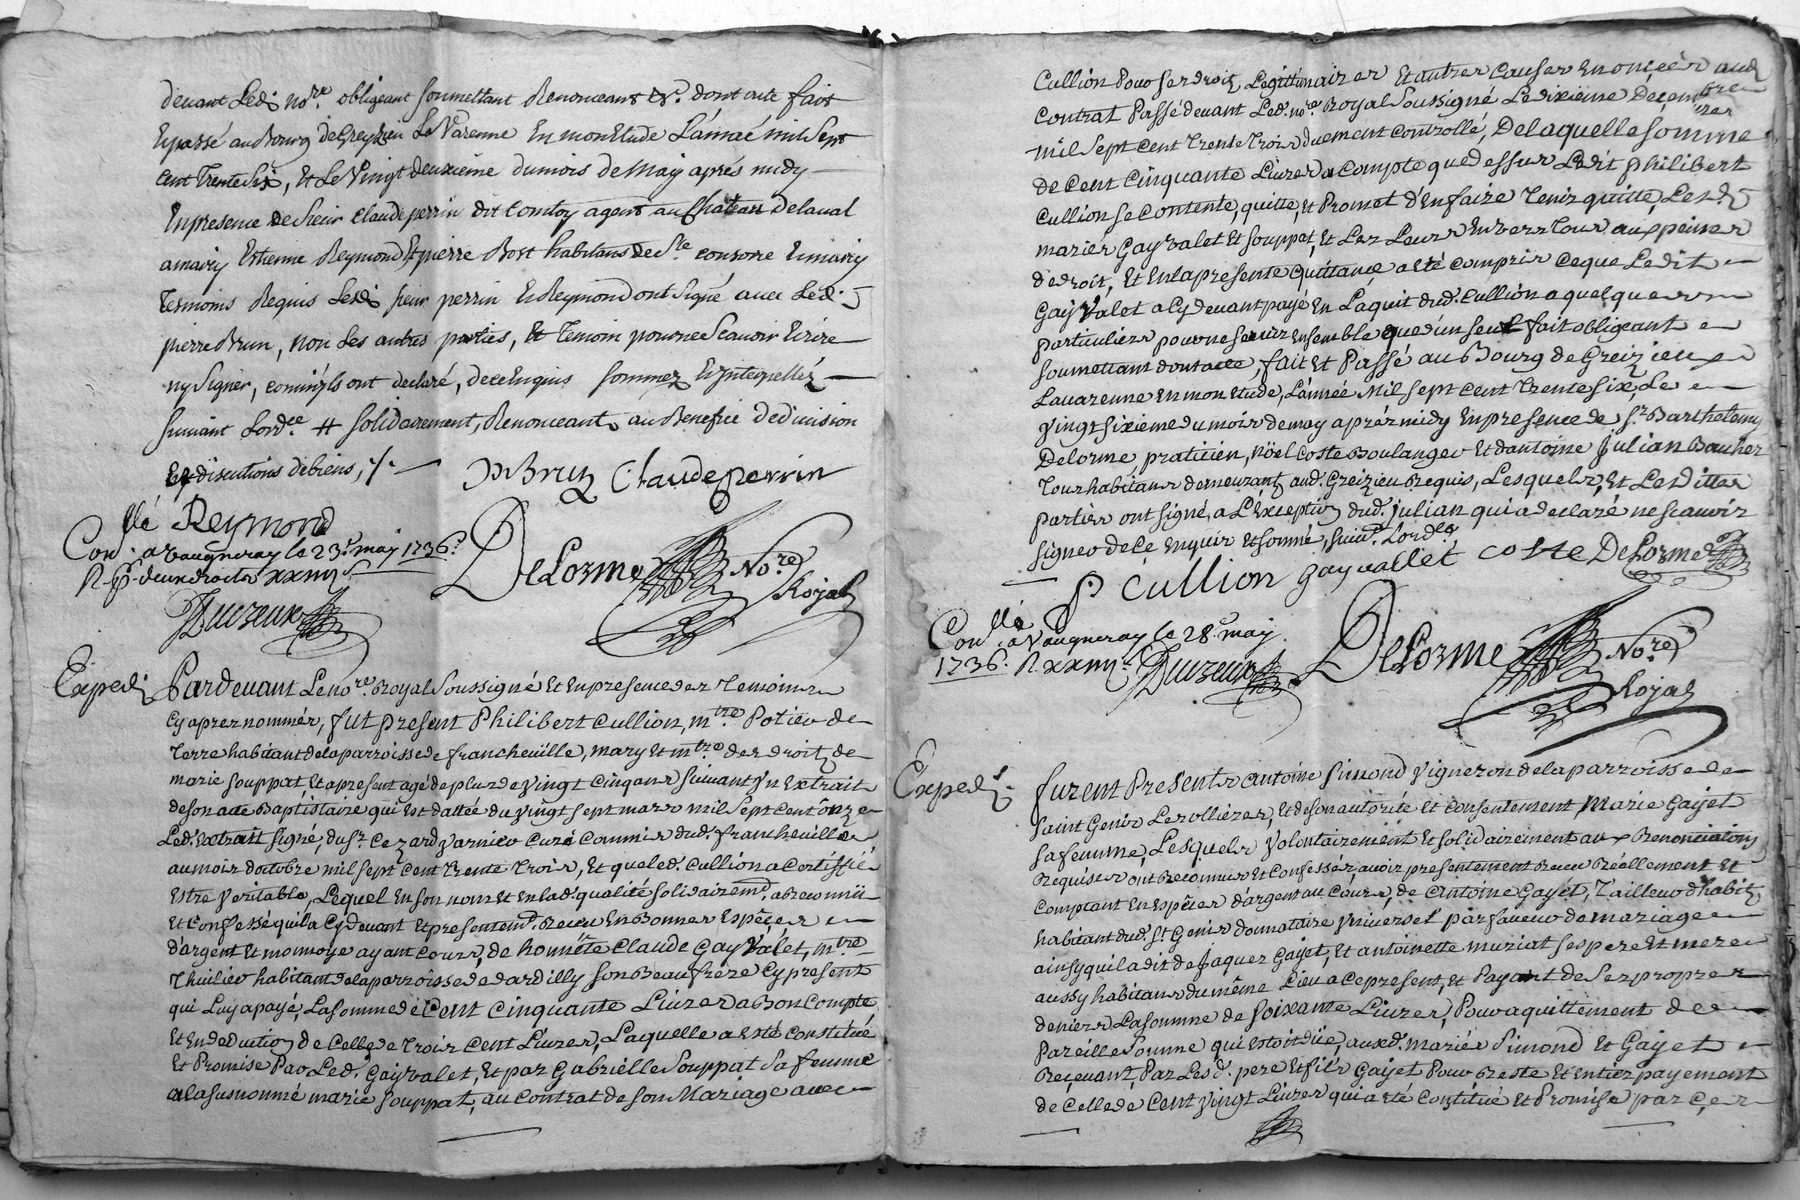 devant Led. no.re obligeant soumettant Renonceant &c. dont acte fait
Et passé au Bourg de Greyzieu La Varenne En mon Etude L'année mil sept
cent Trente Six, Et Le Vingt deuxième du mois de May après midy
En presence de Sieur Claude perrin dit Comtoy agent au Château de laval
Estienne Reymond Et pierre Bost habitans de Ste. consorce
Temoins Requis Lesd. sieur perrin Et Reymond ont Signé avec Led.
pierre Brun, non Les autres parties, Et Temoin pour ne Scavoir Ecrire
ny Signer, comm'ils ont declaré, de ce Enquis sommez Et Interpellez
suivant Lord.ce # solidairement, Renonceant au Benefice de division
Et discutions de biens, ./.
P Brun Claude perrin
Reymond
Con.llé a Vaugneray le 23.e may 1736.
R.
DeLorme No.re Royal
Duvzeux
Exped.
Pardevant Le no.re Royal Soussigné Et En presence des Temoins
Cy aprez nommés, fut present Philibert Cullion, m.tre Potier de
Terre habitant de la parroisse de francheville, mary Et m.tre des droits de
marie Souppat, Et a present agé de plus de Vingt cinq ans suivant Un Extrait
de son acte Baptistaire qui Est datté du Vingt sept mars mil Sept Cent onze
Led. Extrait Signé, du Sr. Curé Commis dud. francheville
au mois d'octobre mil sept cent Trente Trois, Et que led. Cullion a Certiffié
Estre Veritable, Lequel En son nom Et En lad. qualité Solidairem.t, a Reconnü
Et Confessé qu'il a Cy devant Et presentem.t Receu En Bonnes Espéces
d'argent Et monnoye ayant Cours, de honnête Claude Gayvalet, m.tre
Thuilier habitant de la parroisse de dardilly Son Beaufrere Cy present
qui Luy a payé, La Somme de Cent Cinquante Livres a Bon Compte
Et En deduction de Celle de Trois Cent Livres, Laquelle a Esté Constitué
Et Promise Par Led. Gayvalet, Et par Gabrielle Souppat Sa femme
a la susnommé marie Souppat, au Contrat de son Mariage avec
Cullion Pour Ses droits Légitimaires Et autres Causes Enoncées aud.
Contrat Passé devant Led. no.re Royal Soussigné Le dixieme Decembre
mil Sept cent Trente Trois duement Controllé, De laquelle Somme
de Cent Cinquante Livres a Compte que dessus Ledit Philibert
Cullion Se Contente, quitte, Et Promet d'En faire Tenir quitte, Lesd.
mariés Gayvalet Et Souppat, Et Les Leurs Envers Tous aux peines
de droit, Et En la presente quittance a Eté Compris Ce que Ledit
Gay Valet a Cy devant payé En L'aquit dud. Cullion a quelques
particuliers pour ne Servir Ensemble que d'un Seul fait obligeant
Soumettant dont acte, fait Et Passé au Bourg de Greizieu
Lavarenne En mon Etude, L'année Mil Sept Cent Trente Six, Le
Vingt Sixieme du mois de may aprés midy En presence de Sr. Barthelemy
Delorme, praticien, Nöel Coste Boulanger Et d'antoine Julian
Tous habitans demeurants aud. Greizieu Requis, Lesquels, Et Lesdittes
parties ont Signé, a L'Exception dud. Julian qui a declaré ne Scavoir
Signer de Ce Enquis Et Sommé, Suiv.t Lord.ce
P Cullion gayvallet coste DeLorme
Con.llé a Vaugneray le 28.e may
1736. R.
Duvzeux
DeLorme No.re Royal
Exped.
furent Presents antoine Simond Vigneron de la parroisse de
Saint Genis Les ollieres, Et de son autorité Et Consentement Marie Gayet
Sa femme, Lesquels Volontairement Et Solidairement aux Renonciations
Requises ont Reconnus Et Confessés, avoir presentement Receu Réellement Et
Comptant En Espéces d'argent au Cours, de Antoine Gayet, Tailleur d'habits
habitant dud. St. Genis donnataire Universel par faveur de mariage
ainsy qu'il a dit de Jaques Gayet, Et antoinette muziat Ses pere Et mere
aussy habitans du même Lieu a Ce present, Et Payant de Ses propres
deniers La Somme de Soixante Livres, Pour aquittement de
Pareille Somme qui Estoit düe, auxd. mariés Simond Et Gayet
Reçevant, Par Lesd. pere Et fils Gayet Pour Reste Et Entier payement
de Celle de Cent Vingt Livres qui a Eté Constitué Et Promise par Ces